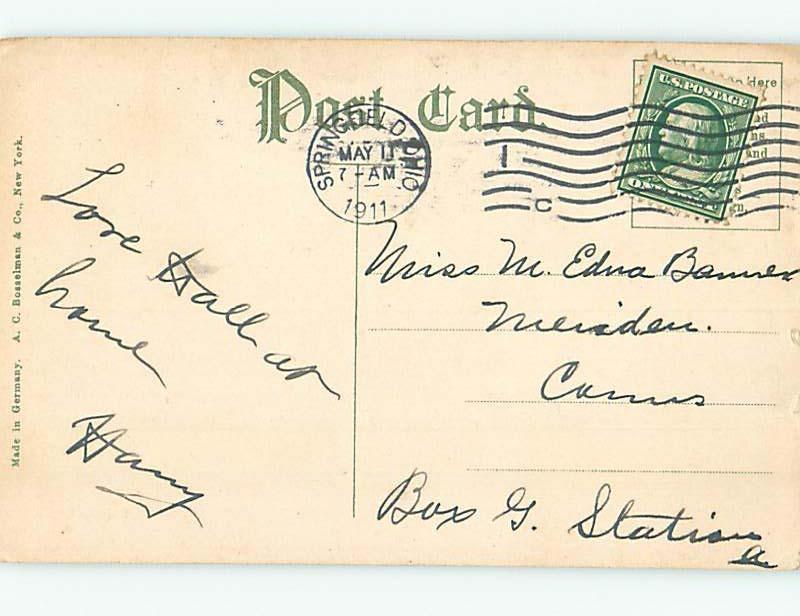 Post Card.
Here
U.S. POSTAGE
and
SPRINGFIELD OHIO
MAY 11
7 - AM
1911
1
C
Made in Germany. A. C. Bosselman & Co., New York.
Love Hall at
home
Harry
Miss M. Edna
Meriden.
Conns
Box G. Station
a